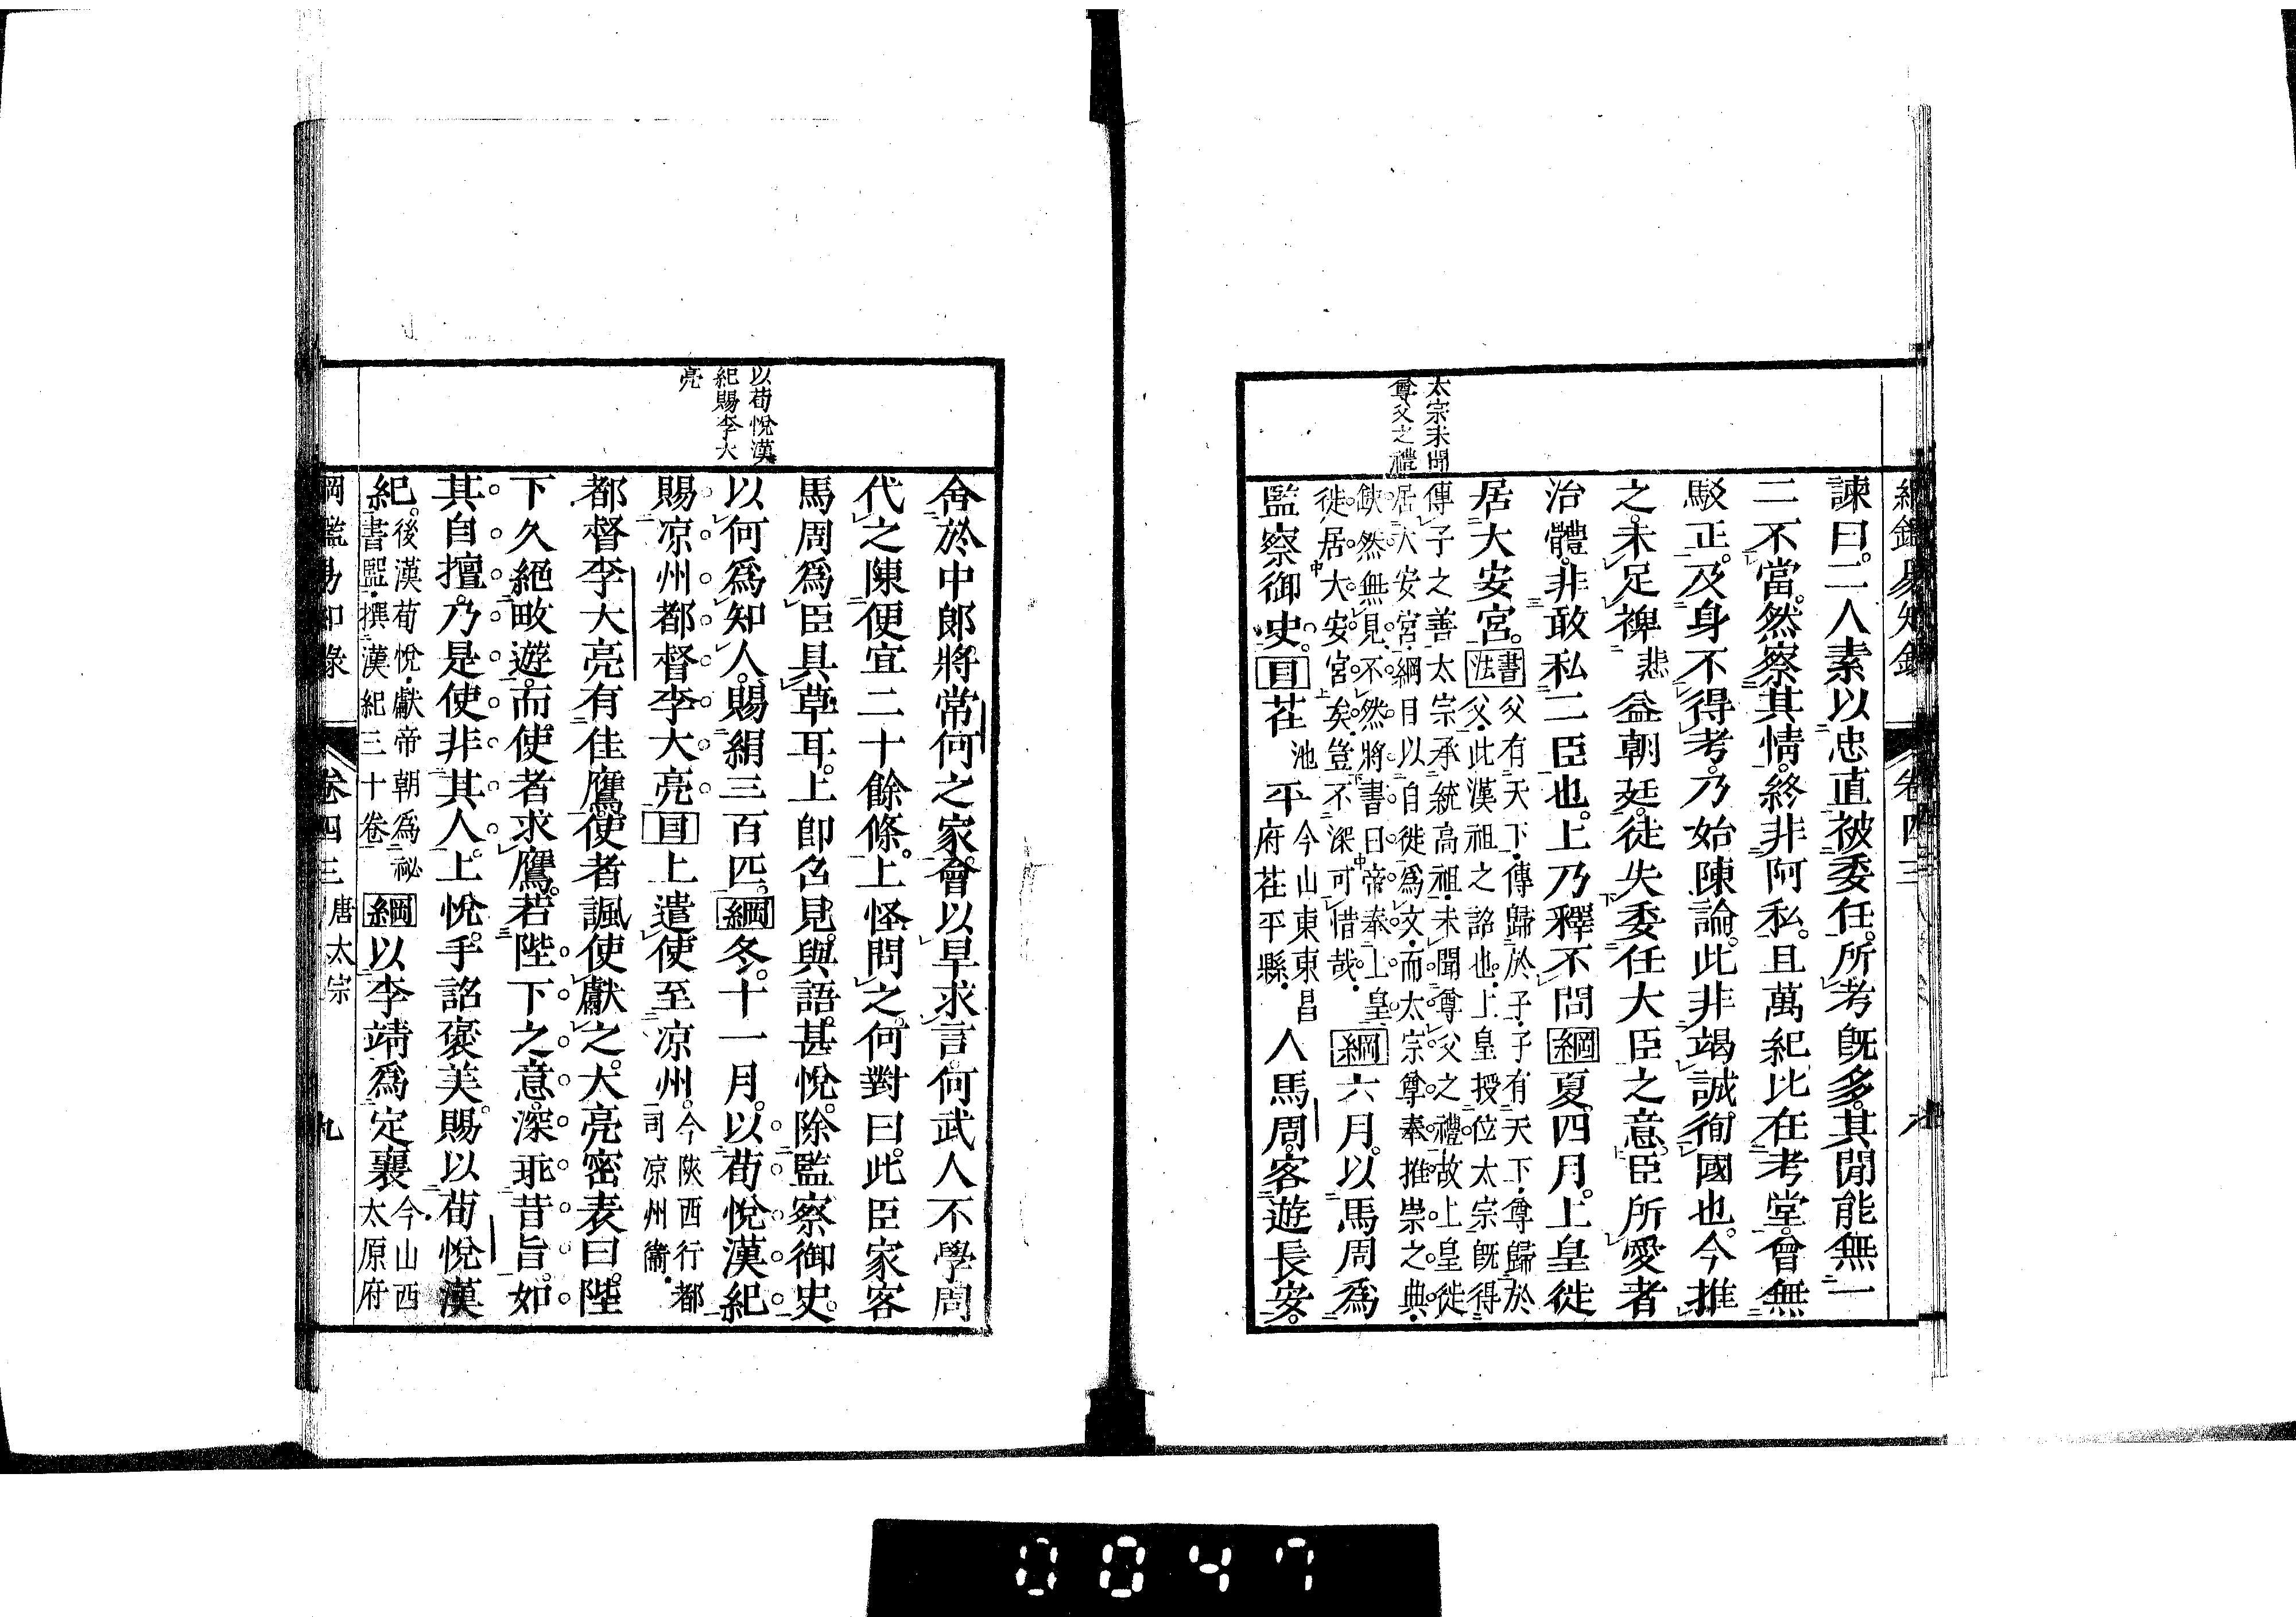 綱鑑易知錄 卷四三
太宗未聞
尊父之禮
諫曰。二人素以忠直被委任。所考既多。其閒能無一
二不當。然察其情。終非阿私。且萬紀比在考堂。曾無
駁正。及身不得考。乃始陳論。此非竭誠徇國也。今推
之。未足裨悲益朝廷。徒失委任大臣之意。臣所愛者
治體。非敢私二臣也。上乃釋不問綱夏。四月。上皇徙
居大安宮。書法父有天下。傳歸於子。子有天下。尊歸於
父。此漢祖之詔也。上皇授位太宗。既得
傳子之善。太宗承統高祖。未聞尊父之禮。故上皇徙
居大安宮。綱目以自徙為文。而太宗尊奉推崇之典。
缺然無見。不然將書曰帝奉上皇
徙居大安宮矣。豈不深可惜哉。綱六月。以馬周爲
監察御史。目茌池平今山東東昌
府茌平縣。人馬周。客遊長安。
以荀悅漢
紀賜李大
亮
舍於中郎將常何之家。會以旱求言。何武人不學。周
代之陳便宜二十餘條。上怪問之。何對曰。此臣家客
馬周爲臣具草耳。上卽召見。與語。甚悅。除監察御史。
以何爲知人。賜絹三百匹。綱冬。十一月。以荀悅漢紀
賜凉州都督李大亮目上遣使至凉州。今陝西行都
司凉州衞。
都督李大亮有佳鷹。使者諷使獻之。大亮密表曰。陛
下久絕畋遊。而使者求鷹。若陛下之意。深乖昔旨。如
其自擅。乃是使非其人。上悅。手詔褒美。賜以荀悅漢
紀。後漢荀悅。獻帝朝爲祕
書監。撰漢紀三十卷綱以李靖爲定襄今山西
太原府
綱鑑易知錄 卷四三 唐太宗 九
0047